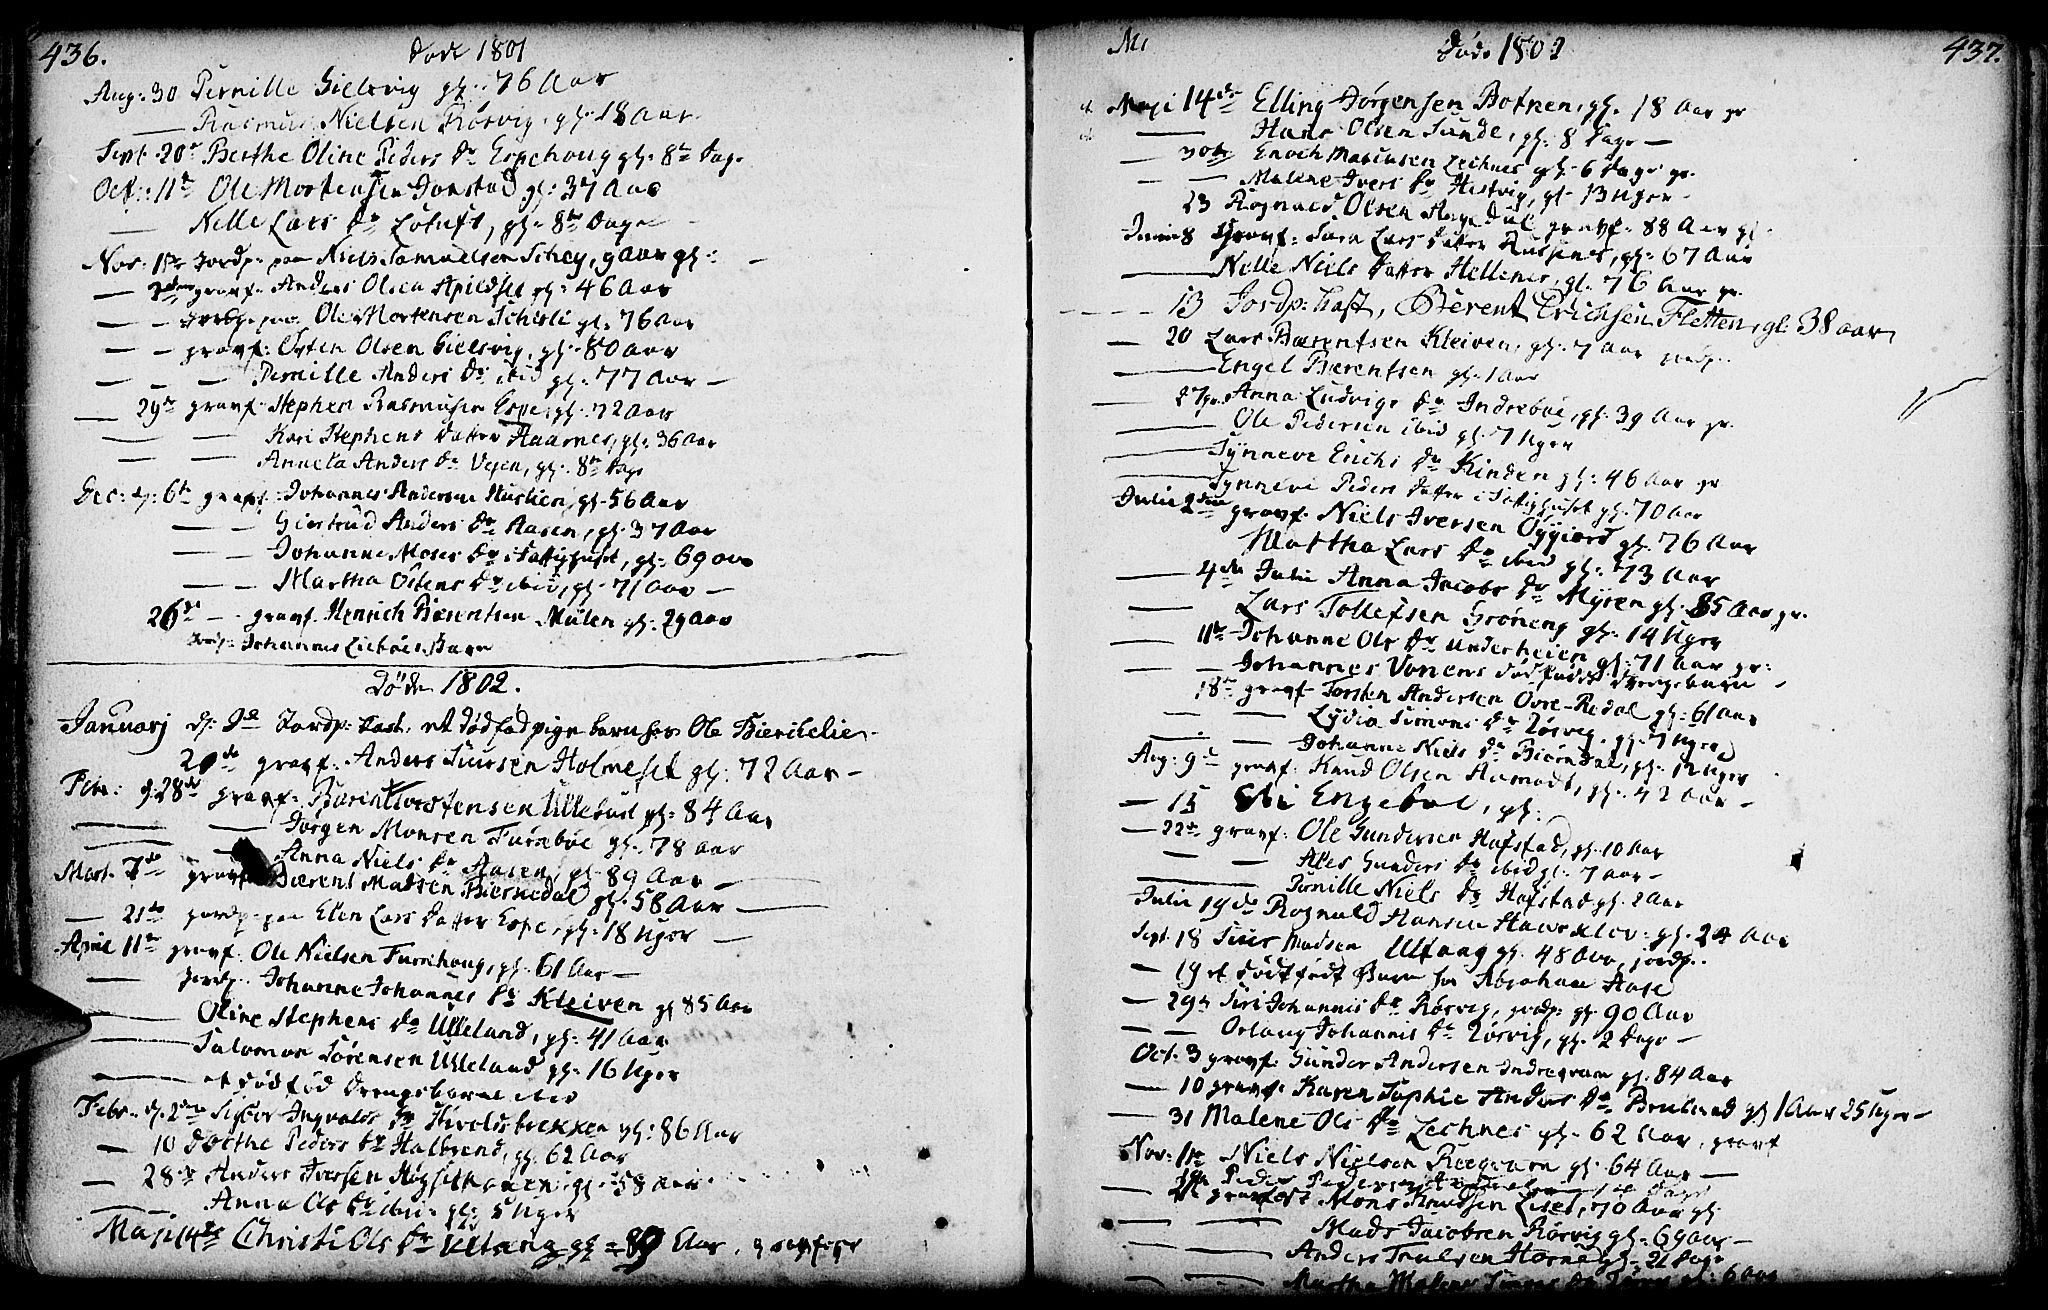 436.
Døde 1801
Aug: 30 Pernille Gielsvig gl: 76 Aar
— Rasmus Nielsen Rørvig, gl: 18 Aar
Sept. 20de Berthe Oline Peders Dr Espehoug gl: 8te Dage
Oct: 11te Ole Mortensen Jonstad gl: 37 Aar
— Nille Lars Dr Lotuft, gl: 8te Dage
Nov: 1ste Jordp: paa Niels Samuelsen Schey, 9 Aar gl:
— gravf: Anders Olsen gl: 46 Aar
— — Jordp: paa Ole Mortensen gl: 76 Aar
— — gravf: Østen Olsen Gielsvig, gl: 80 Aar
— — — Pernille Anders Dr ibid gl: 77 Aar —
— 29de gravf: Stephen Rasmusen Espe, gl: 72 Aar
— — Kari Stephens Datter Haarnes, gl: 36 Aar
— — Annela Anders Dr Vejen, gl: 8te Dage
Dec: d: 6te gravf: Johannes Andersen gl: 56 Aar
— — Giertrud Anders Dr Aasen, gl: 37 Aar
— — Johanne Moses Dr i Fattighuset, gl: 69 Aar
— — Martha Østens Dr ibid, gl: 71 Aar —
26de — gravf. Henrich Bærentsen Mulen gl: 29 Aar
Jordp: Johannes Barn
Døde 1802.
Januarj d: Jordp: kast. et dødfød pige barn hos Ole
gravf: Anders Siursen Holmeset gl: 72 Aar —
Febr: d: 28de gravf: Bærent Torstensen Ulleland gl: 84 Aar
— — Jørgen Monsen Furseboe gl: 78 Aar
— — Anna Niels Dr Aasen, gl: 89 Aar —
Mart. 7de gravf: Bærent Madsen Biernedal gl: 58 Aar —
— 21de jordp: paa Elen Lars Datter Espe, gl: 18 Uger —
April 11te gravf: Ole Nielsen Fursehoug, gl: 61 Aar —
— Jordp: Johanne Johannes Dr Kleiven gl 85 Aar
— Oline Stephens Dr Ulleland, gl: 41 Aar
— Salomon Sørensen Ulleland gl: 16 Uger
— et dødfød Drengebarn ibid
Febr: d. 2den Ingvalds Dr gl: 86 Aar
— 10 Dorthe Peders Dr Halbrend, gl: 62 Aar
— 28de Anders Iversen gl: 58 Aar
— Anna Ols Dr ibid gl: 5 Uger
Maji 14de Christi Ols Dr Ultang gl = 89 Aar, gravfest
437.
Døde 1802
Maji 14de Elling Jørgensen Botnen, gl: 18 Aar gr
— Hans Olsen Sunde, gl: 8 Dage —
— 30te Enoch Masiusen Lechnes gl: 6 Dage gr.
— — Malene Ivers Dr Hestvig, gl: 13 Uger —
23 Rognald Olsen gravf: 88 Aar gl:
Junii 8 gravf: Sara Lars Datter gl: 67 Aar
— Nille Niels Datter Hellenes, gl: 76 Aar gr.
— 13 Jordp: kast, Bærent Erichsen Fletten, gl: 38 aar,
— 20 Lars Bærentsen Kleiven, gl: 7 Aar
— Engel Bærentsen gl: 1 Aar
— 27 gr. Anna Ludvigs Dr Indreboe, gl: 39 Aar gr.
— Ole Pedersen ibid gl: 7 Uger
— Synneve Erichs Dr Kinden gl: 46 Aar gr
— Synneve Peders Datter i Fattighuset gl: 70 Aar
Julii 2den gravf: Niels Iversen Oygiærd gl. 76 Aar
— Martha Lars Dr ibid gl: 73 Aar
— 4de Julii Anna Jacobs Dr Myren gl: 85 Aar gr.
— Lars Tollefsen Grøneng gl: 14 Uger
— 11te Johanne Ols Dr Underheien gl: 71 Aar gr:
— — Johannes Vonens dødfødt Drengebarn —
18de gravf: Torsten Andersen Øvre-Redal gl: 61 Aar
— — Lydia Simons Dr Rørvig, gl: 7 Uger
— — Johanne Niels Dr Biørndal, gl: 12 Uger
Aug: 9de gravf: Knud Olsen Aamodt, gl: 42 Aar —
— 15 Engeboe, gl:
— 22de gravf: Ole Gundersen Hafstad, gl: 10 Aar
— — Ales Gunders Dr ibid gl: 7 Aar —
— Pernille Niels Dr Hafstad gl: 2 Aar
Julii 19de Rognald Hansen gl: 24 Aar
Sept. 18 Siur Madsen Ultang gl: 48 Aar, jordp:
— 19 et dødfødt Barn for Abraham Aase
— 29de Siri Johannis Dr Rørvig, jordp: gl: 90 Aar
— — Johannis Dr Rørvig, gl: 2 Dage —
Oct. 3 gravf: Gunder Andersen gl: 84 Aar
— 10 gravf: Karen Sophie Anders Dr Bruland gl 1 Aar 25 Uger —
— 31 Malene Ols Dr Lechnes gl: 62 Aar, gravf
Nov: 1ste Niels Nielsen gl: 64 Aar —
Peder Pedersen Dage
— gravfest Mons Knudsen 70 Aar gl:
— — Mads Jacobsen Rørvig gl: 69 Aar —
— — Anders Truelsen Horne gl: 21 Dage
— — Martha Malene gl: 6 Aar